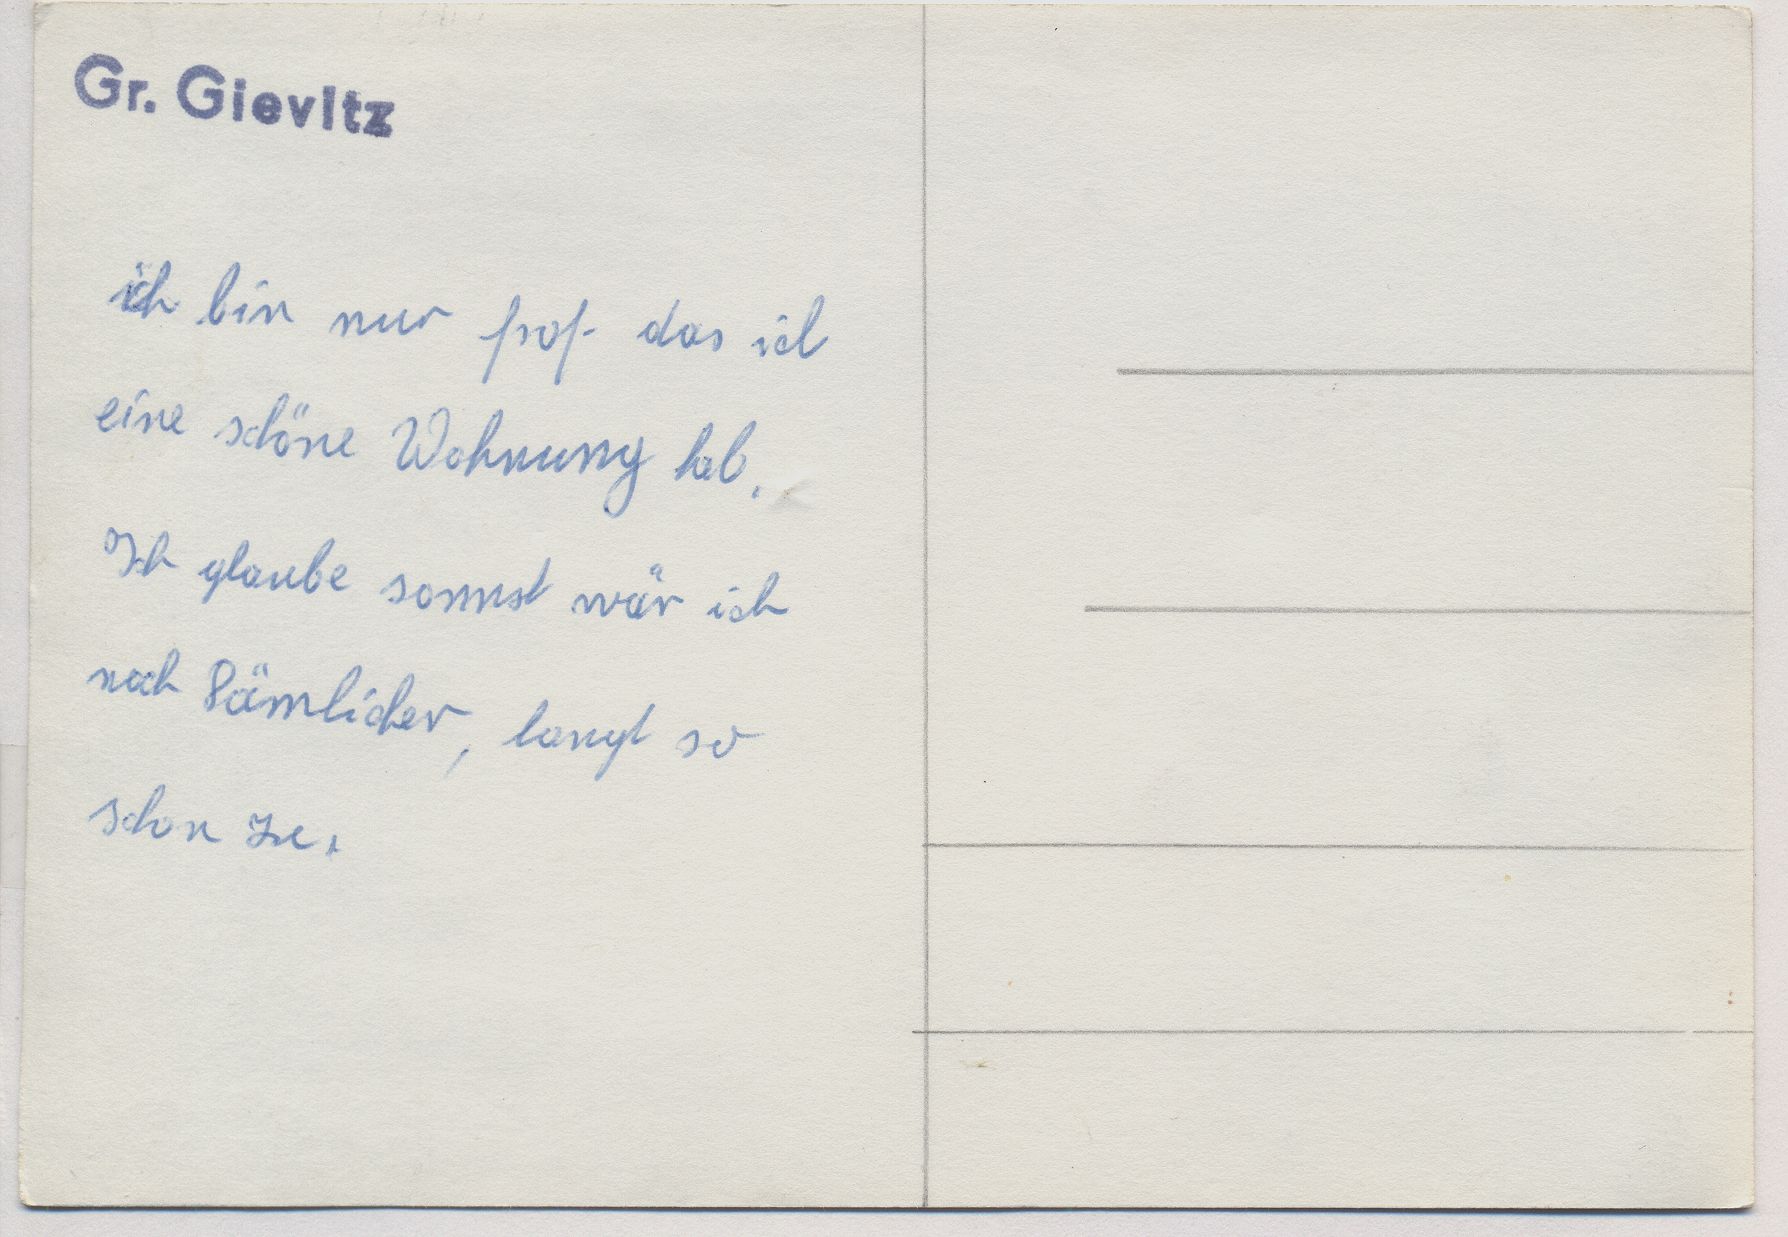 Gr. Gievitz
ich bin nur froh das ich
eine schöne Wohnung hab.
Ich glaube sonnst wär ich
noch dämlicher, langt so
schon zu.